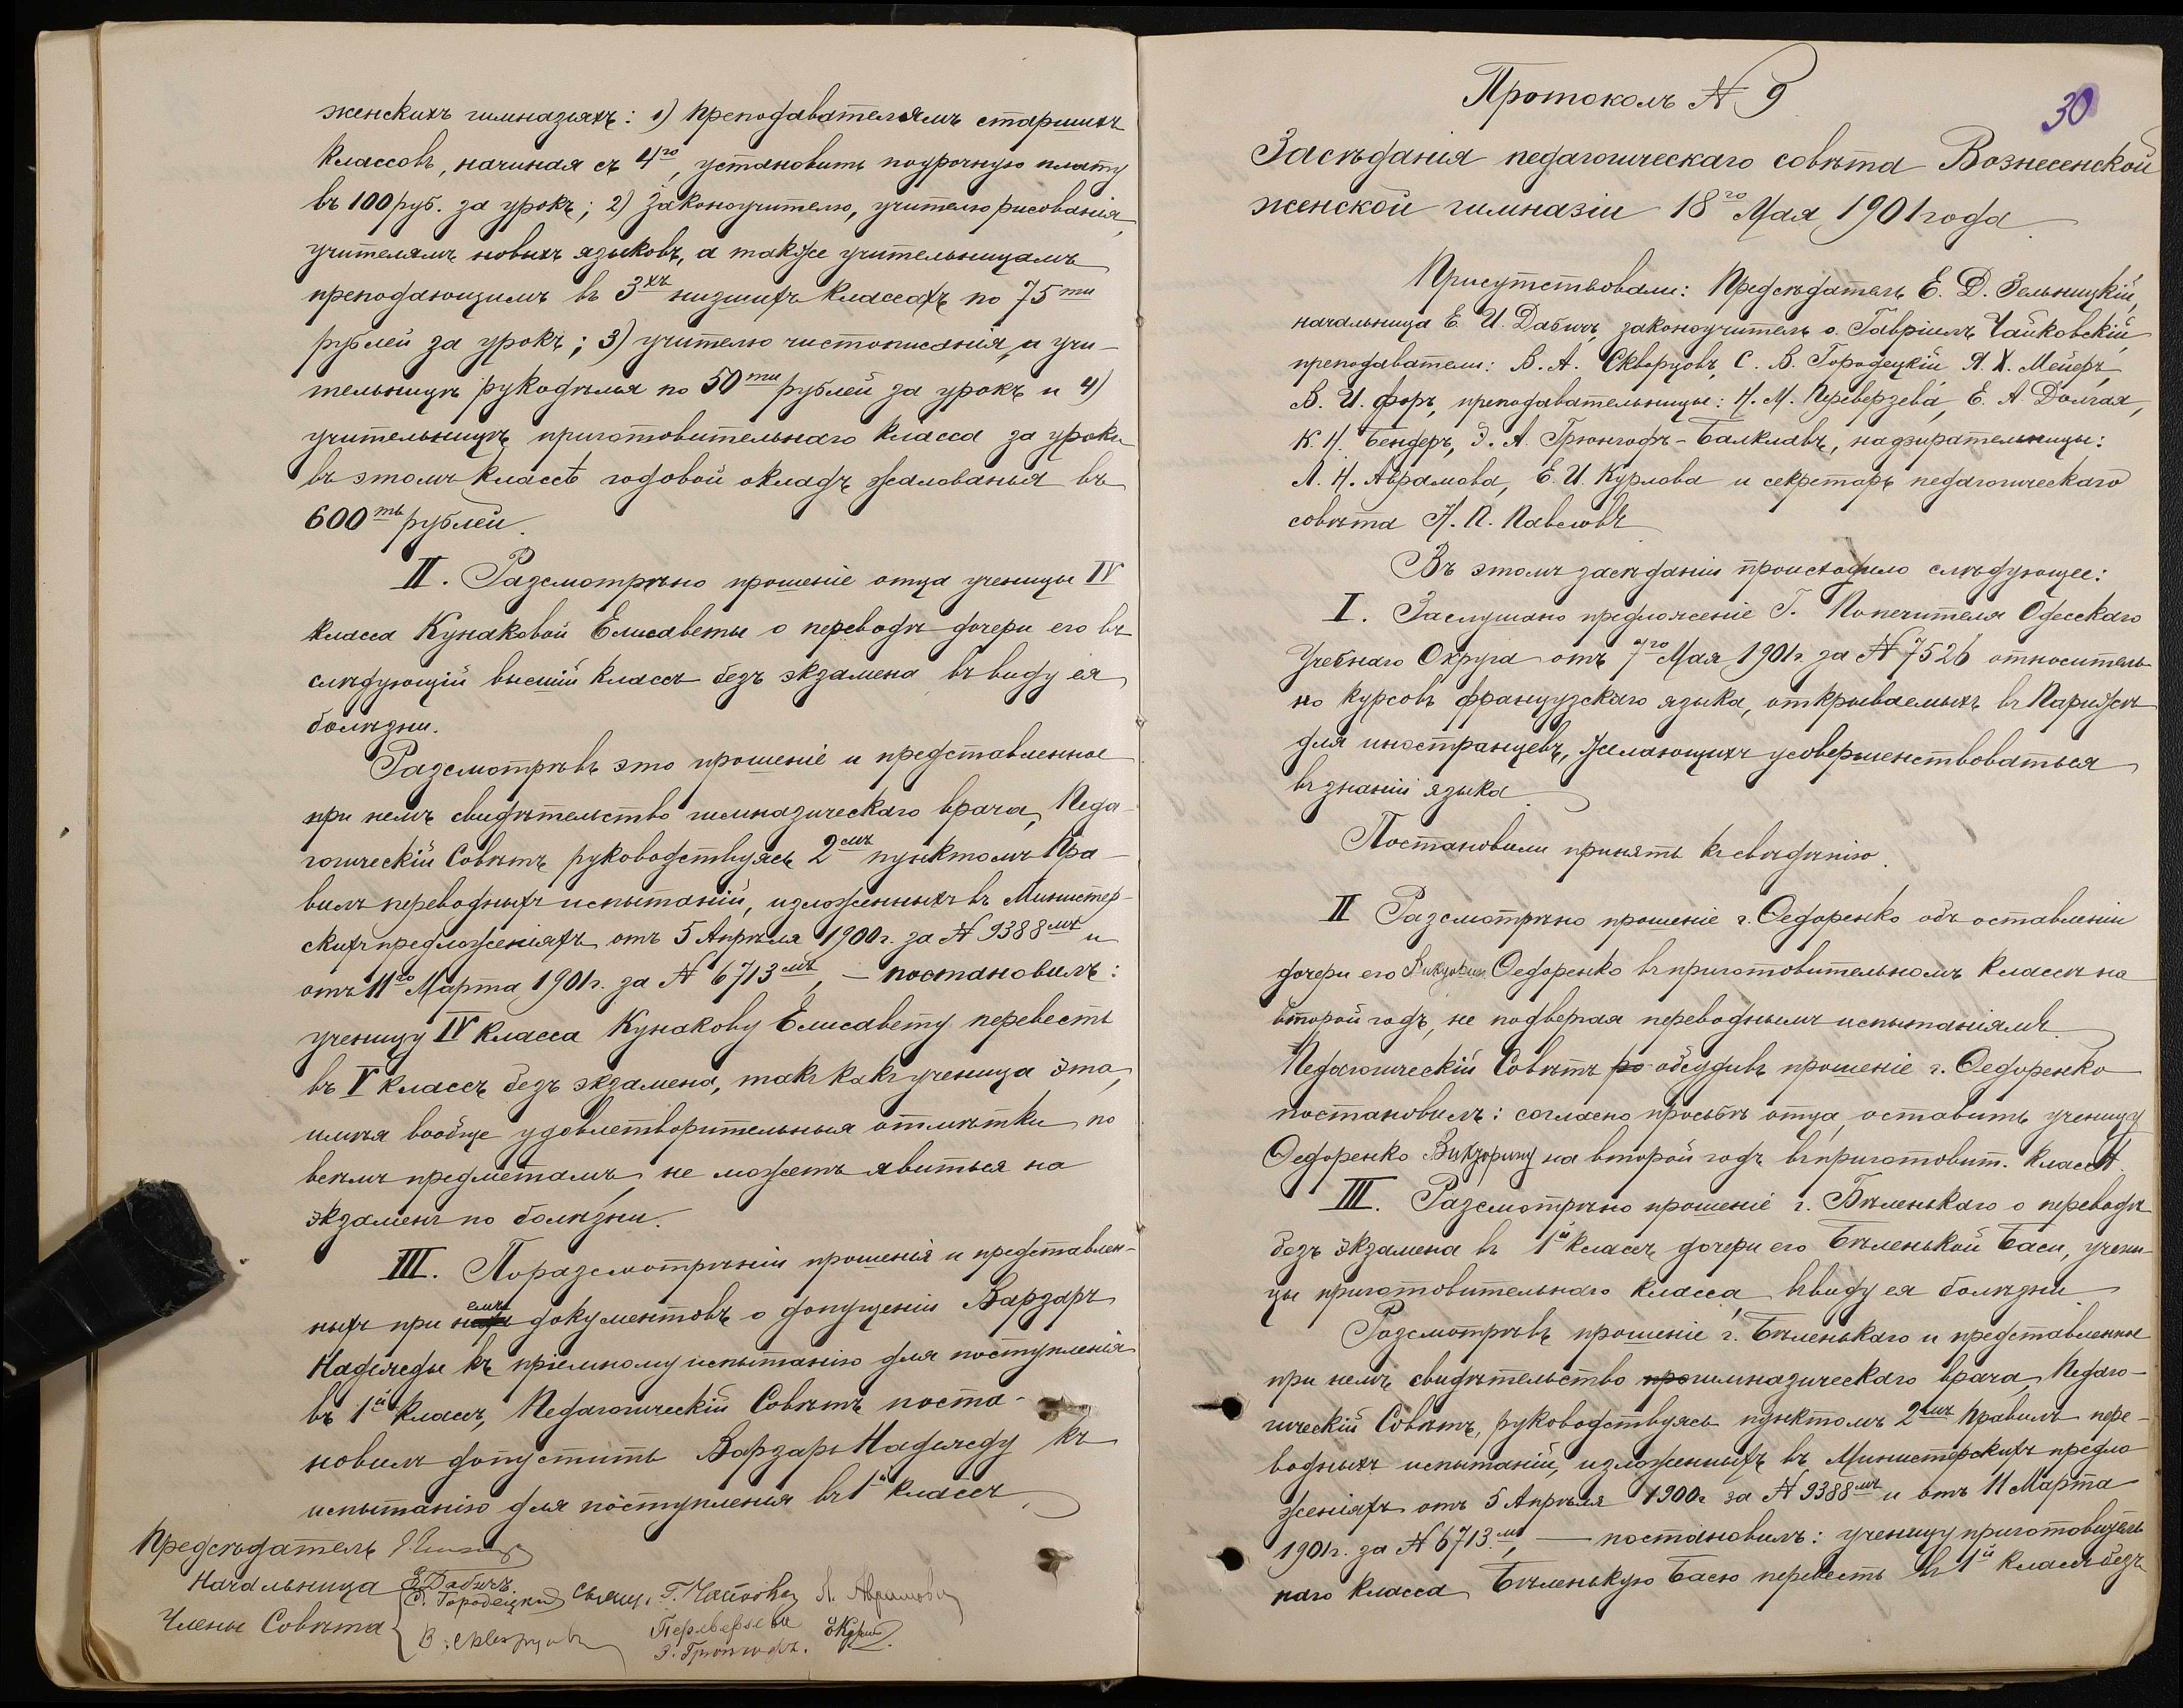 женскихъ гимназіяхъ: 1) преподавателямъ старшихъ
классовъ, начиная съ 4го, установить поурочную плату
въ 100 руб. за урокъ; 2) законоучителю, учителю рисованія,
учителямъ новыхъ языковъ, а также учительницамъ
преподающимъ въ 3хъ низшихъ классахъ по 75ти
рублей за урокъ; 3) учителю чистописанія и учи-
тельницѣ рукодѣлья по 50ти рублей за урокъ и 4)
учительницѣ приготовительнаго класса за уроки
въ этомъ классѣ годовой окладъ жалованья въ
600ть рублей.
II. Разсмотрѣно прошеніе отца ученицы IV
класса Кунаковой Елисаветы о переводѣ дочери его въ
слѣдующій высшій классъ безъ экзамена въ виду ея
болѣзни.
Разсмотрѣвъ это прошеніе и представленное
при немъ свидѣтельство гимназическаго врача, Педа-
гогическій Совѣтъ руководствуясь 2мъ пунктомъ Пра-
вилъ переводныхъ испытаній, изложенныхъ въ Министер-
скихъ предложеніяхъ отъ 5 Апрѣля 1900 г. за № 9388мъ и
отъ 11го Марта 1901 г. за № 6713мъ, — постановилъ:
ученицу IV класса Кунакову Елисавету перевесть
въ V классъ безъ экзамена, такъ какъ ученица эта,
имѣя вообще удовлетворительныя отмѣтки по
всѣмъ предметамъ, не можетъ явиться на
экзаменъ по болѣзни.
III. По разсмотрѣніи прошенія и представлен-
ныхъ при немъ документовъ о допущеніи Варзаръ
Надежды къ пріемному испытанію для поступленія
въ 1й классъ, Педагогическій Совѣтъ поста-
новилъ допустить Варзаръ Надежду къ
испытанію для поступленія въ 1й классъ.
Предсѣдатель
Начальница Е. Дабичъ.
Члены Совѣта С. Городецкій Свящ. Г. Чайковскій Л. Аврамова
В. Скворцовъ Переверзева
Э. Грюнгофъ.
Протоколъ № 9
30
Засѣданія педагогическаго совѣта Вознесенской
женской гимназіи 18го Мая 1901 года.
Присутствовали: Предсѣдатель Е. Д. Зельницкій,
начальница Е. И. Дабичъ, законоучитель о. Гавріилъ Чайковскій,
преподаватели: В. А. Скворцовъ, С. В. Городецкій, Я. Х. Мейеръ,
В. И. Форъ, преподавательницы: Н. М. Переверзева, Е. А. Долгая,
К. Н. Бендеръ, Э. А. Грюнгофъ-Балклавъ, надзирательницы:
Л. Н. Аврамова, Е. И. Курлова и секретарь педагогическаго
совѣта Н. П. Павловъ
Въ этомъ засѣданіи происходило слѣдующее:
I. Заслушано предложеніе Г. Попечителя Одесскаго
Учебнаго Округа отъ 7го Мая 1901 г. за № 7526 относитель-
но курсовъ французскаго языка, открываемыхъ въ Парижѣ
для иностранцевъ, желающихъ усовершенствоваться
въ знаніи языка.
Постановили принять къ свѣдѣнію.
II Разсмотрѣно прошеніе г. Ѳедоренко объ оставленіи
дочери его Викторіи Ѳедоренко въ приготовительномъ классѣ на
второй годъ, не подвергая переводнымъ испытаніямъ.
Педагогическій Совѣтъ ро обсудивъ прошеніе г. Ѳедоренко
постановилъ: согласно просьбѣ отца, оставить ученицу
Ѳедоренко Викторину на второй годъ въ приготовит. классѣ.
III. Разсмотрѣно прошеніе г. Бѣленькаго о переводѣ
безъ экзамена въ 1й классъ дочери его Бѣленькой Баси, учени-
цы приготовительнаго класса, въ виду ея болѣзни.
Разсмотрѣвъ прошеніе г. Бѣленькаго и представленное
при немъ свидѣтельство про гимназическаго врача, Педаго-
гическій Совѣтъ, руководствуясь пунктомъ 2мъ Правилъ пере-
водныхъ испытаній, изложенныхъ въ Министерскихъ предло-
женіяхъ отъ 5 Апрѣля 1900 г. за № 9388мъ и отъ 11 Марта
1901 г. за № 6713мъ, — постановилъ: ученицу приготовитель-
наго класса Бѣленькую Басю перевесть въ 1й классъ безъ